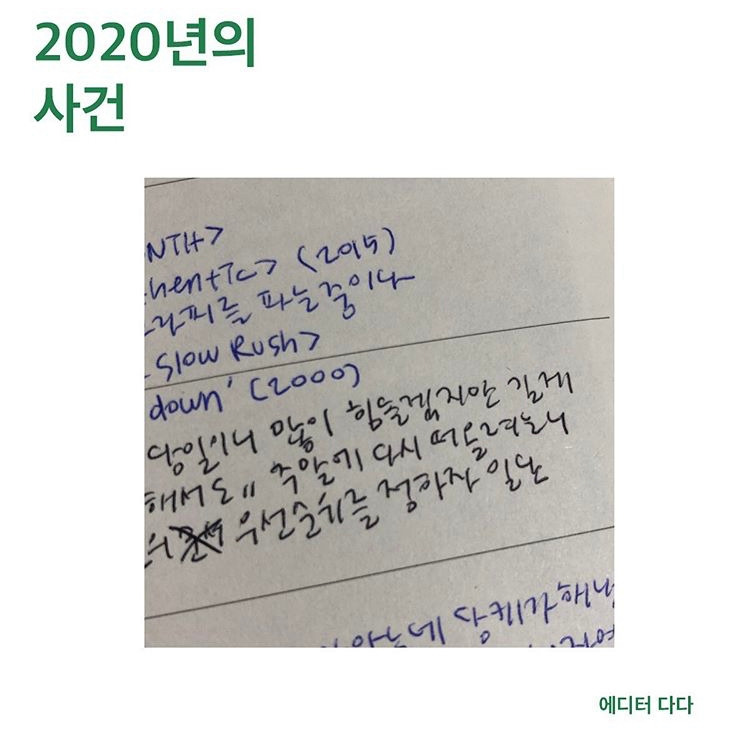 2020년의
사건
NTH>
henTic> (2015)
라피를 파는 중이다
Slow Rush>
down' (2000)
당일이니 많이 힘들겠지만 길게
해서도 " 주말에 다시 떠올려보니
의 우선순위를 정하자 일단
에디터 다다